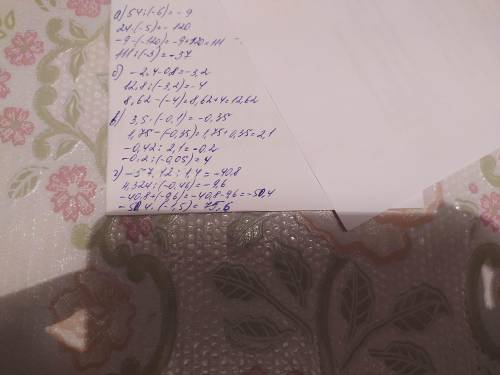 а) 54:(-6)=-9
24·(-5)=-120
-9-(-120)=-9+120=111
111:(-3)=-37
б) -2,4-0,8=-3,2
12,8:(-3,2)=-4
8,62-(-4)=8,62+4=12,62
в) 3,5·(-0,1)=-0,35
1,75-(-0,35)=1,75+0,35=2,1
-0,42:2,1=-0,2
-0,2:(-0,05)=4
г) -57,12:1,4=-40,8
4,324:(-0,46)=-9,6
-40,8+(-9,6)=-40,8-9,6=-50,4
-50,4·(-1,5)=75,6